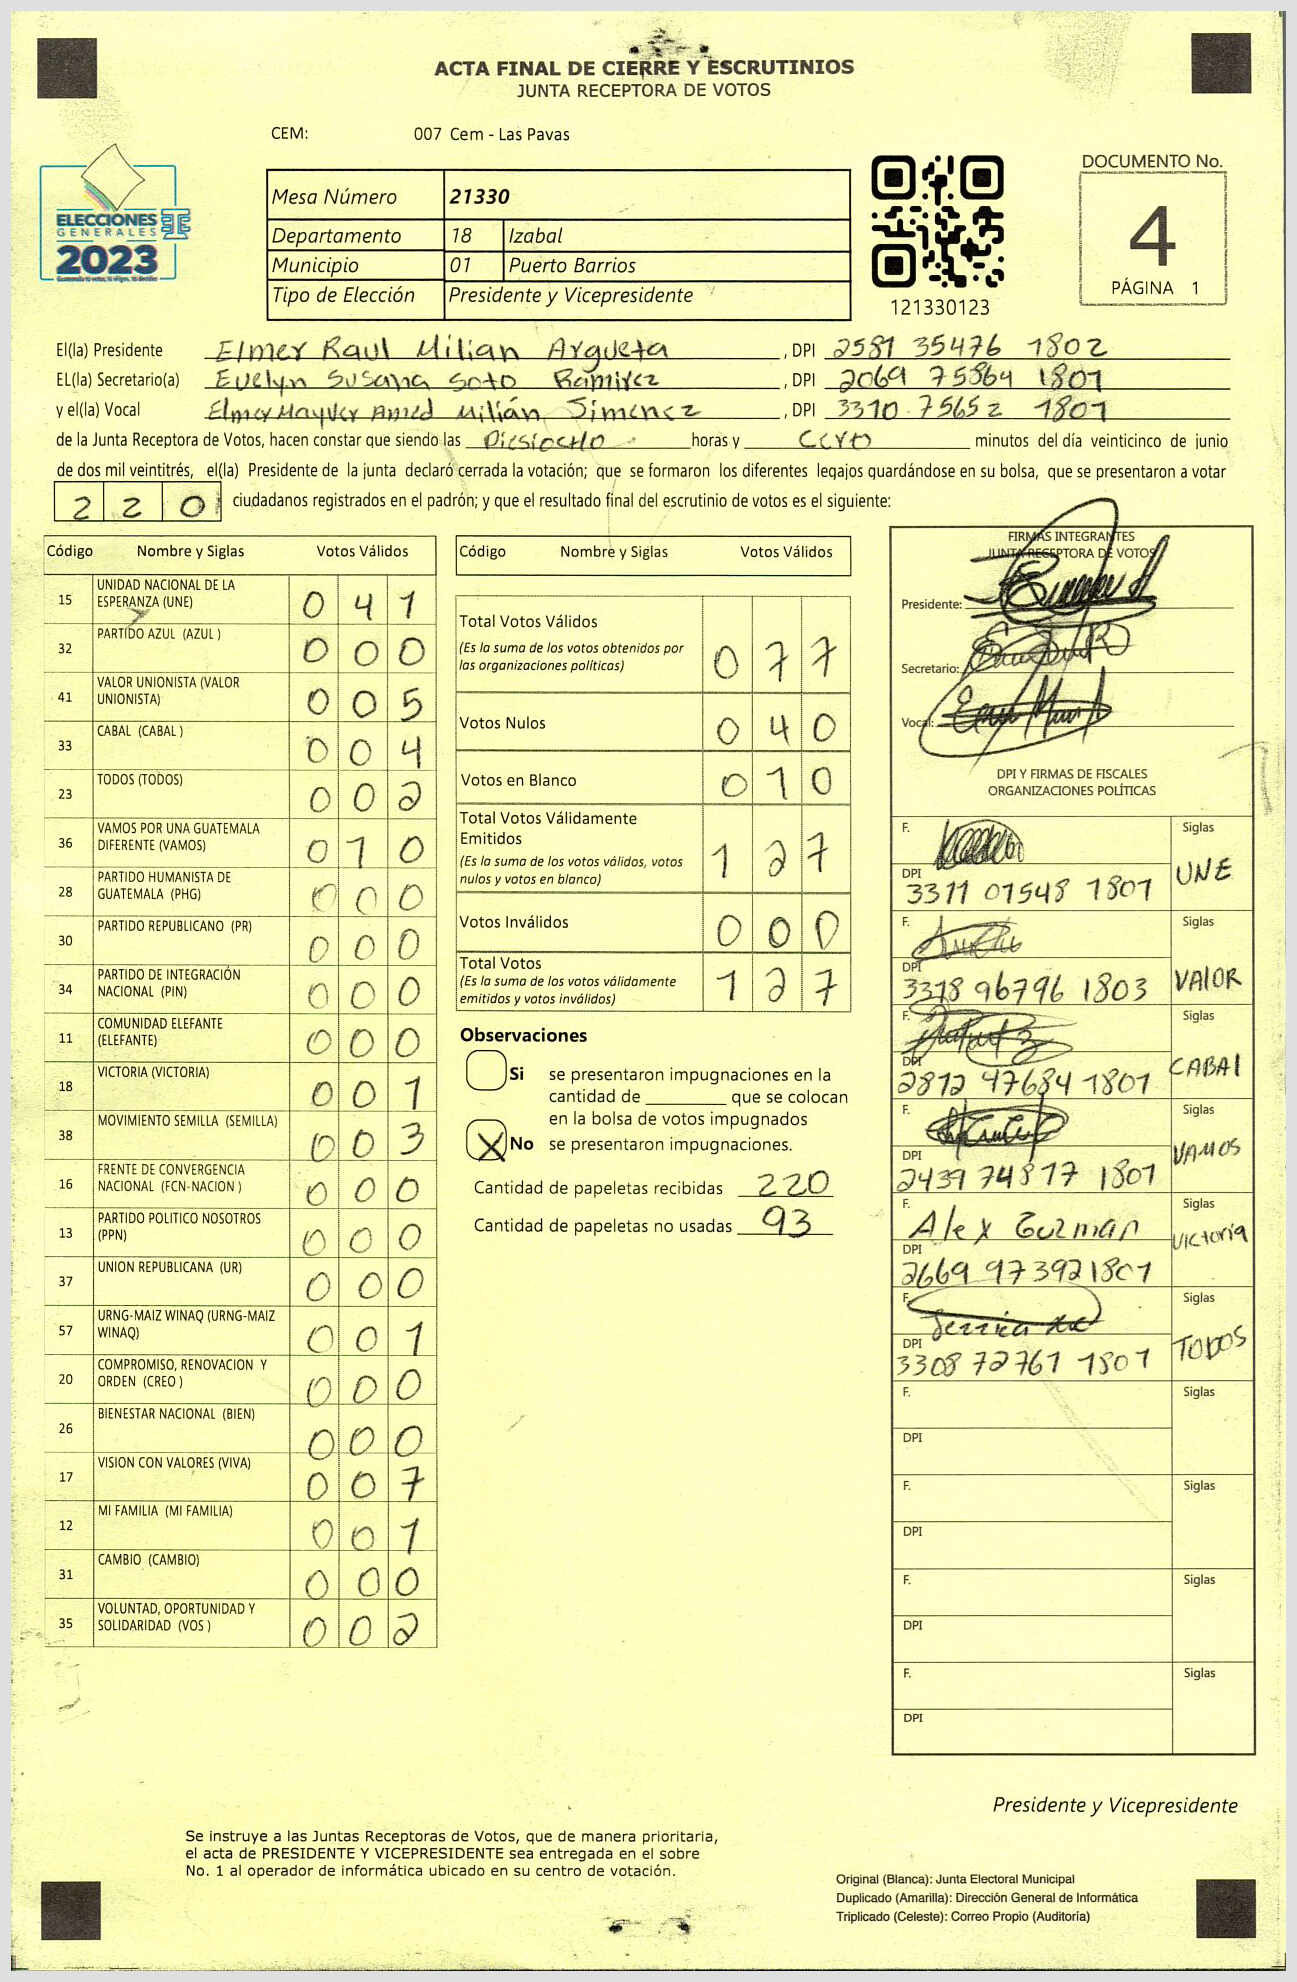 ACTA FINAL DE CIERRE Y ESCRUTINIOS
JUNTA RECEPTORA DE VOTOS
CEM: 007 Cem - Las Pavas
ELECCIONES
GENERALES
2023
Mesa Número 21330
Departamento 18 Izabal
Municipio 01 Puerto Barrios
Tipo de Elección Presidente y Vicepresidente
121330123
DOCUMENTO No.
4
PÁGINA 1
El(la) Presidente Elmer Raul Milian Argueta , DPI 2581 35476 1802
EL(la) Secretario(a) Evelyn Susana Soto Ramirez , DPI 2069 75864 1801
y el(la) Vocal Elmer Mayver Amed Milián Jimenez , DPI 3310 75652 1801
de la Junta Receptora de Votos, hacen constar que siendo las Diesiocho horas y Cero minutos del día veinticinco de junio
de dos mil veintitrés, el(la) Presidente de la junta declaró cerrada la votación; que se formaron los diferentes legajos guardándose en su bolsa, que se presentaron a votar
220 ciudadanos registrados en el padrón; y que el resultado final del escrutinio de votos es el siguiente:
Código Nombre y Siglas Votos Válidos
15 UNIDAD NACIONAL DE LA ESPERANZA (UNE) 041
32 PARTIDO AZUL (AZUL ) 000
41 VALOR UNIONISTA (VALOR UNIONISTA) 005
33 CABAL (CABAL ) 004
23 TODOS (TODOS) 002
36 VAMOS POR UNA GUATEMALA DIFERENTE (VAMOS) 010
28 PARTIDO HUMANISTA DE GUATEMALA (PHG) 000
30 PARTIDO REPUBLICANO (PR) 000
34 PARTIDO DE INTEGRACIÓN NACIONAL (PIN) 000
11 COMUNIDAD ELEFANTE (ELEFANTE) 000
18 VICTORIA (VICTORIA) 001
38 MOVIMIENTO SEMILLA (SEMILLA) 003
16 FRENTE DE CONVERGENCIA NACIONAL (FCN-NACION ) 000
13 PARTIDO POLITICO NOSOTROS (PPN) 000
37 UNION REPUBLICANA (UR) 000
57 URNG-MAIZ WINAQ (URNG-MAIZ WINAQ) 001
20 COMPROMISO, RENOVACION Y ORDEN (CREO ) 000
26 BIENESTAR NACIONAL (BIEN) 000
17 VISION CON VALORES (VIVA) 007
12 MI FAMILIA (MI FAMILIA) 001
31 CAMBIO (CAMBIO) 000
35 VOLUNTAD, OPORTUNIDAD Y SOLIDARIDAD (VOS ) 002
Código Nombre y Siglas Votos Válidos
Total Votos Válidos
(Es la suma de los votos obtenidos por
las organizaciones políticas) 077
Votos Nulos 040
Votos en Blanco 010
Total Votos Válidamente
Emitidos
(Es la suma de los votos válidos, votos
nulos y votos en blanco) 127
Votos Inválidos 000
Total Votos
(Es la suma de los votos válidamente
emitidos y votos inválidos) 127
Observaciones
Si se presentaron impugnaciones en la
cantidad de ________ que se colocan
en la bolsa de votos impugnados
X No se presentaron impugnaciones.
Cantidad de papeletas recibidas 220
Cantidad de papeletas no usadas 93
FIRMAS INTEGRANTES
JUNTA RECEPTORA DE VOTOS
Presidente:
Secretario:
Vocal:
DPI Y FIRMAS DE FISCALES
ORGANIZACIONES POLÍTICAS
F. Siglas
DPI UNE
3311 01548 1801
F. Siglas
DPI VALOR
3318 96796 1803
F. Siglas
DPI CABAl
2812 47684 1801
F. Siglas
DPI VAMOS
2439 74877 1801
F. Alex Guzman Siglas
DPI Victoria
2669 97392 1801
F. Siglas
DPI TODOS
3308 72761 1801
F. Siglas
DPI
F. Siglas
DPI
F. Siglas
DPI
F. Siglas
DPI
Presidente y Vicepresidente
Se instruye a las Juntas Receptoras de Votos, que de manera prioritaria,
el acta de PRESIDENTE Y VICEPRESIDENTE sea entregada en el sobre
No. 1 al operador de informática ubicado en su centro de votación.
Original (Blanca): Junta Electoral Municipal
Duplicado (Amarilla): Dirección General de Informática
Triplicado (Celeste): Correo Propio (Auditoría)